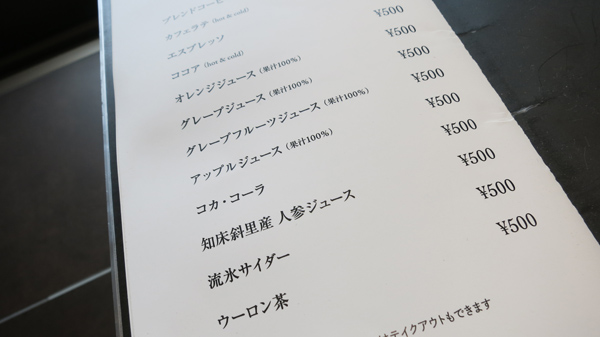 ブレンドコーヒ
カフェラテ (hot & cold)
エスプレッソ ¥500
ココア (hot & cold) ¥500
オレンジジュース (果汁100%) ¥500
グレープジュース (果汁100%) ¥500
グレープフルーツジュース (果汁100%) ¥500
アップルジュース (果汁100%) ¥500
コカ・コーラ ¥500
知床斜里産 人参ジュース ¥500
流氷サイダー ¥500
ウーロン茶
はテイクアウトもできます